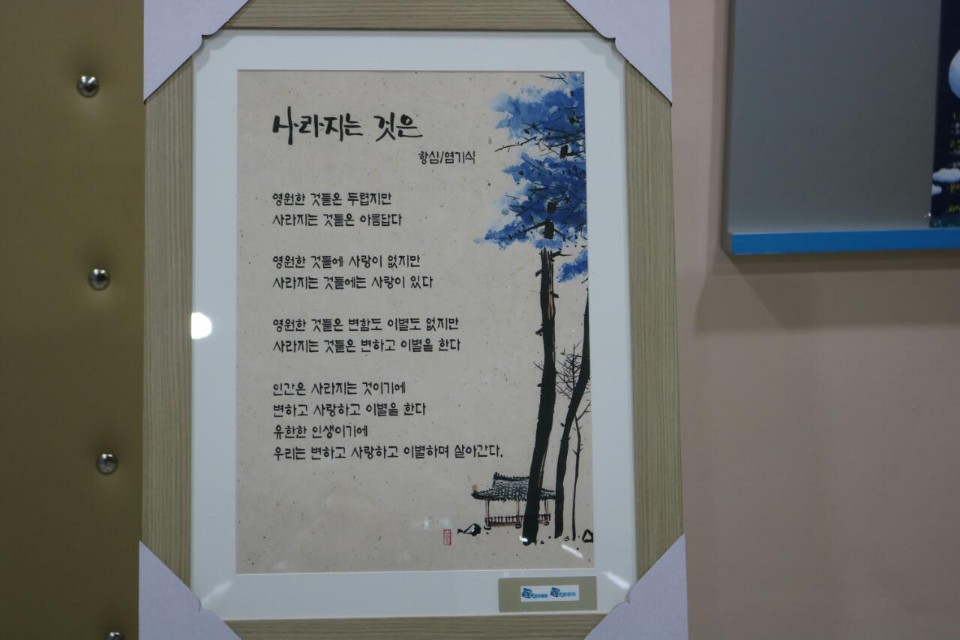 사라지는 것은
항심/염기식
영원한 것들은 두렵지만
사라지는 것들은 아름답다
영원한 것들에 사랑이 없지만
사라지는 것들에는 사랑이 있다
영원한 것들은 변함도 이별도 없지만
사라지는 것들은 변하고 이별을 한다
인간은 사라지는 것이기에
변하고 사랑하고 이별을 한다
유한한 인생이기에
우리는 변하고 사랑하고 이별하며 살아간다.